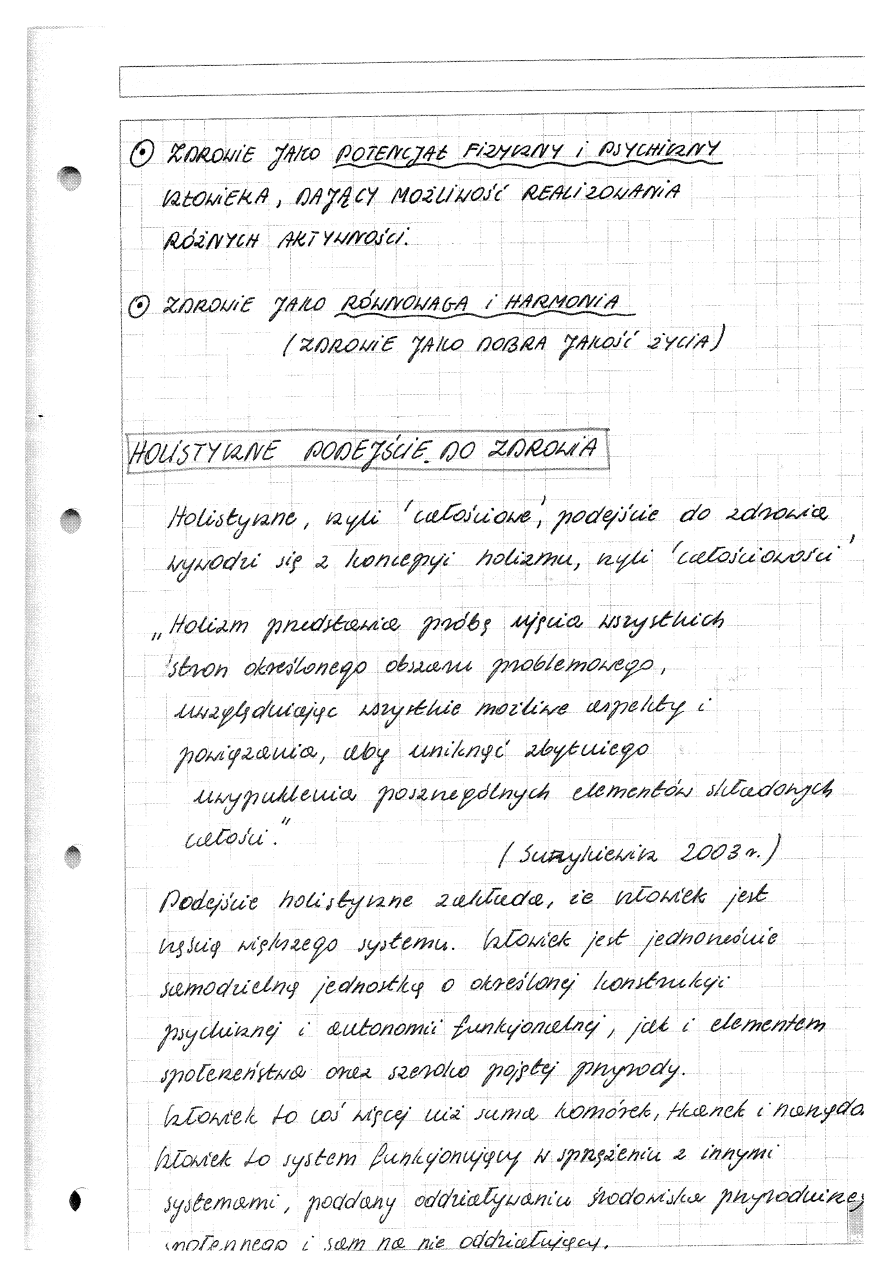 ⊙ ZDROWIE JAKO POTENCJAŁ FIZYCZNY i PSYCHICZNY
CZŁOWIEKA, DAJĄCY MOŻLIWOŚĆ REALIZOWANIA
RÓŻNYCH AKTYWNOŚCI.
⊙ ZDROWIE JAKO RÓWNOWAGA i HARMONIA
(ZDROWIE JAKO DOBRA JAKOŚĆ ŻYCIA)
HOLISTYCZNE PODEJŚCIE DO ZDROWIA
Holistyczne, czyli 'całościowe', podejście do zdrowia
wywodzi się z koncepcji holizmu, czyli 'całościowości'
„Holizm przedstawia próbę ujęcia wszystkich
stron określonego obszaru problemowego,
uwzględniając wszystkie możliwe aspekty i
powiązania, aby uniknąć zbytniego
uwypuklenia poszczególnych elementów składowych
całości."
(Surzykiewicz 2003 r.)
Podejście holistyczne zakłada, że człowiek jest
częścią większego systemu. Człowiek jest jednocześnie
samodzielną jednostką o określonej konstrukcji
psychicznej i autonomii funkcjonalnej, jak i elementem
społeczeństwa oraz szeroko pojętej przyrody.
Człowiek to coś więcej niż suma komórek, tkanek i narządó
Człowiek to system funkcjonujący w sprzężeniu z innymi
systemami, poddany oddziaływaniu środowiska przyrodniczeg
społecznego i sam na nie oddziałujący.